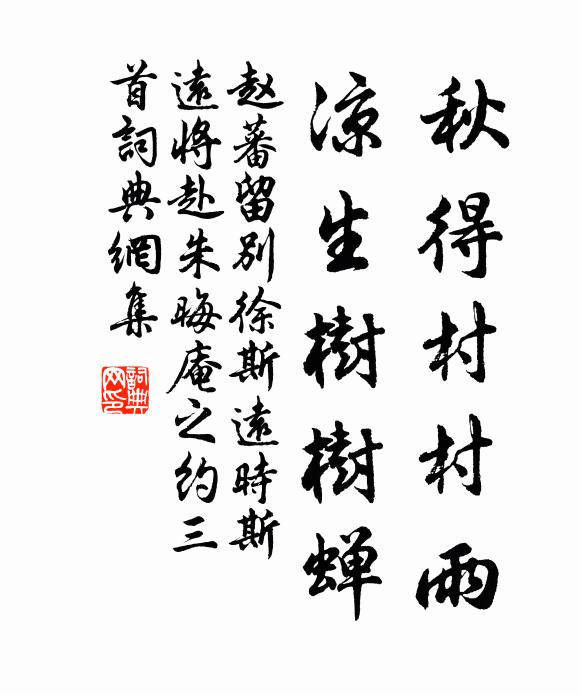 秋得村村雨
凉生樹樹蝉
赵蕃留别徐斯遠時斯
遠將赴朱晦庵之約三
首詞典網集
詞典
网印